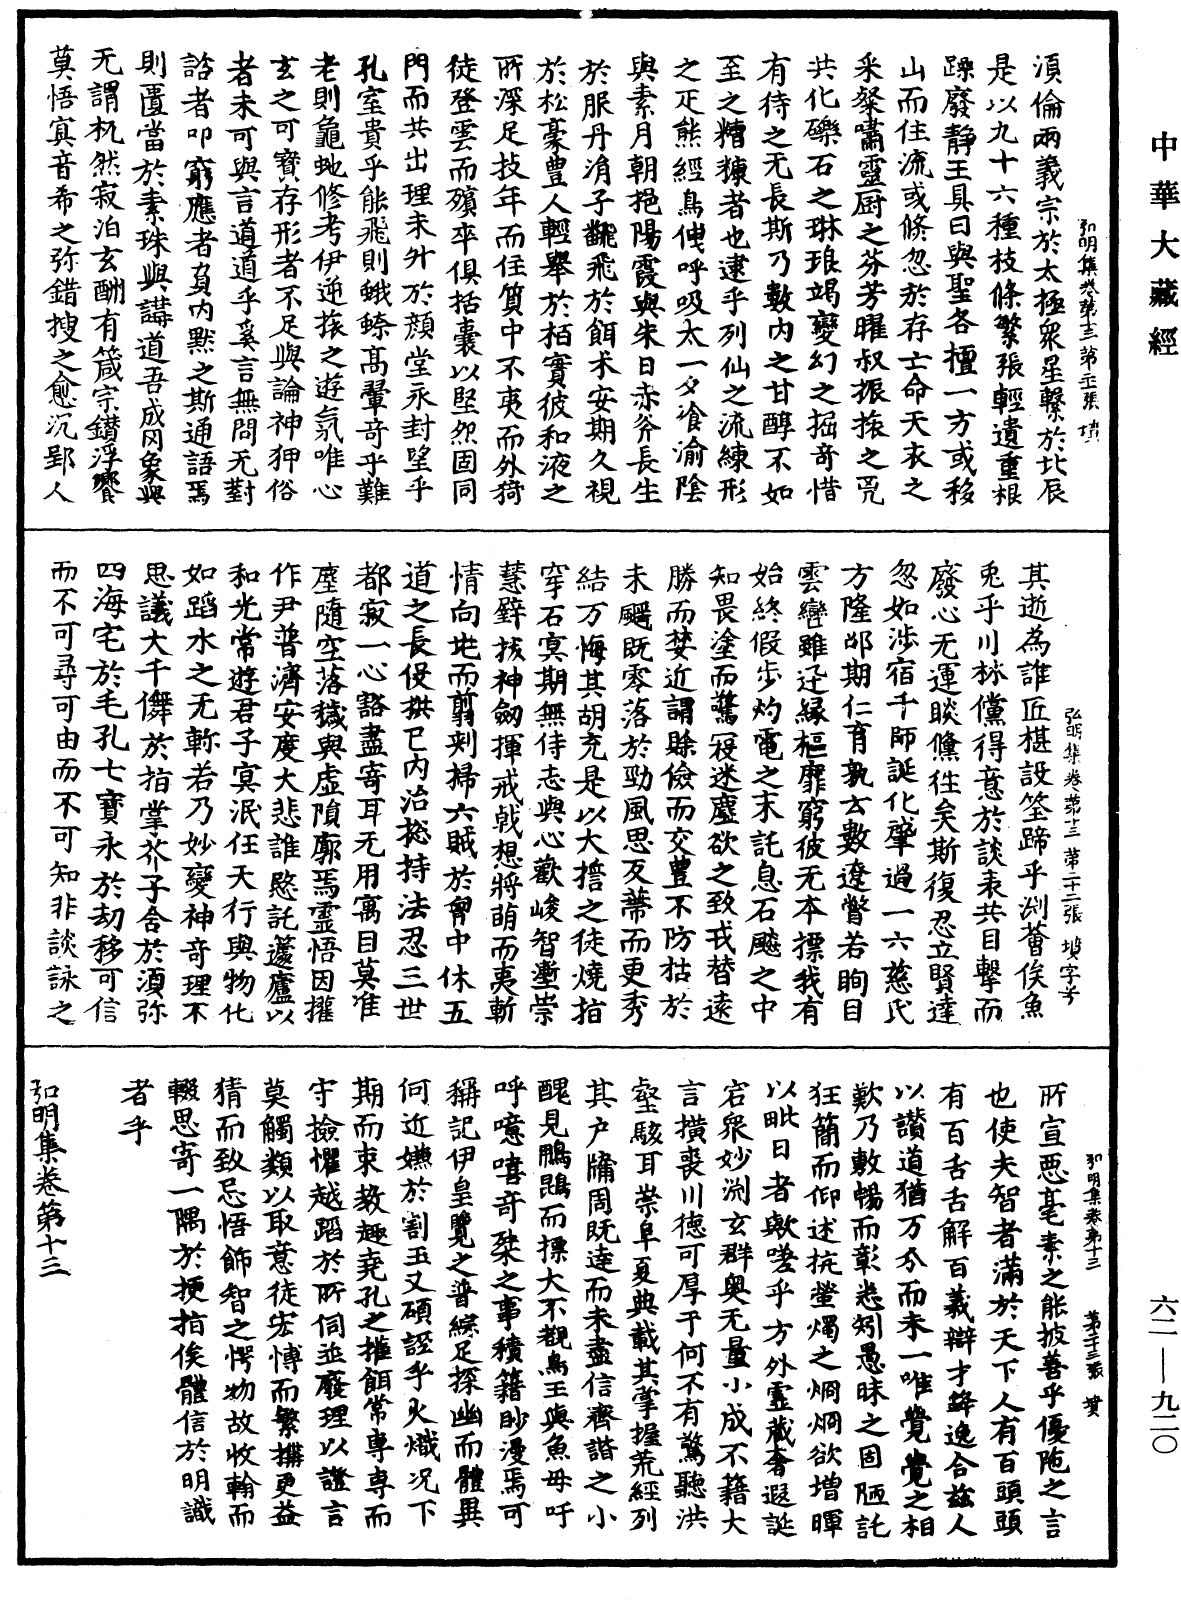 中華大藏經
弘明集卷第十三 第二十一張 墳
湏倫兩義宗於太極衆星繫於北辰
是以九十六種枝條繁張輕遺重根
躁廢静王具曰與聖各擅一方或移
山而住流或倏忽於存亡命天衣之
采粲嘯靈厨之芬芳曜叔振旅之𠒋
共化礫石之琳琅竭變幻之掘奇惜
有待之无長斯乃數内之甘醇不如
至之糟糠者也逮乎列仙之流練形
之疋熊經鳥伸呼吸太一夕飡渝陰
與素月朝挹陽霞與朱日赤斧長生
於服丹涓子翻飛於餌术安期久視
於松豪豊人輕舉於栢實彼和液之
所深足技年而住質中不夷而外猗
徒登雲而殞卒俱括囊以堅怨固同
門而共出理未升於顔堂永封望乎
孔室貴乎能飛則蛾蝝髙翬奇乎難
老則龜虵修考伊逆旅之遊氛唯心
玄之可寶存形者不足與論神狎俗
者未可與言道道乎奚言無問无對
諮者叩窮應者負内默之斯通語焉
則匱當於素珠與講道吾成罔象與
无謂杌然寂泊玄酬有箴宗鑚浮饗
莫悟寘音希之弥錯搜之愈沉郢人
弘明集卷第十三 第二十二張 墳字号
其逝為誰匠椹設筌蹄乎渕薈俟魚
兎乎川林儻得意於談表共目擊而
廢心无運睒儵徃矣斯復忍立賢達
忽如涉宿千師誕化肇過一六慈氏
方隆邰期仁育孰云數遼瞥若眴目
雲巒雖迂縁樞靡窮彼无本摽我有
始終假步灼電之末託息石飈之中
知畏塗而驚寇迷塵欲之致戎替遠
勝而婪近謂賖儉而交豊不防枯於
未颺既零落於勁風思反蔕而更秀
結万悔其胡充是以大擔之徒燒指
穿石寘期無侍志與心歡峻智壍崇
慧鋅拔神劒揮戒戟想將萌而夷斬
情向地而翦剌掃六賊於胷中休五
道之長伇拱已内治揔持法忍三世
都寂一心豁盡寄耳无用寓目莫准
塵隨空落穢與虚隕廓焉靈悟因擢
作尹普濟安度大悲誰愍託蘧廬以
和光常遊君子寘泯任天行與物化
如蹈水之无斬若乃妙變神奇理不
思議大千儛於指掌芥子舍於湏弥
四海宅於毛孔七寶永於刧移可信
而不可尋可由而不可知非談詠之
弘明集卷第十三 第二十三張 墳
所宣悪毫素之能披善乎優陁之言
也使夫智者滿於天下人有百頭頭
有百舌舌解百義辯才鋒逸合兹人
以讃道猶万分而未一唯覺覺之相
歎乃敷暢而彰悉矧愚昧之固陋託
狂簡而仰述抗螢燭之烱烱欲増暉
以毗日者歟嗟乎方外靈藏奢遐誕
宕衆妙渕玄群奥无量小成不籍大
言横喪川德可厚于何不有驚聽洪
壑駭耳崇阜夏典載其掌握荒經列
其户牖周既逹而未盡信齊諧之小
醜見鵬鵾而摽大不觀鳥王與魚母吁
呼噫嘻奇桀之事積籍眇漫焉可
稱記伊皇覽之普綜足探幽而體異
何近嫌於割玉又碩誣乎火熾况下
期而束教趣堯孔之摧餌常専専而
守撿懼越蹈於所伺並廢理以證言
莫觸類以取意徒宏愽而繁搆更益
猜而致忌悟飾智之愕物故收翰而
輟思寄一隅於㨝指俟體信於明識
者乎
弘明集卷第十三
六二—九二〇